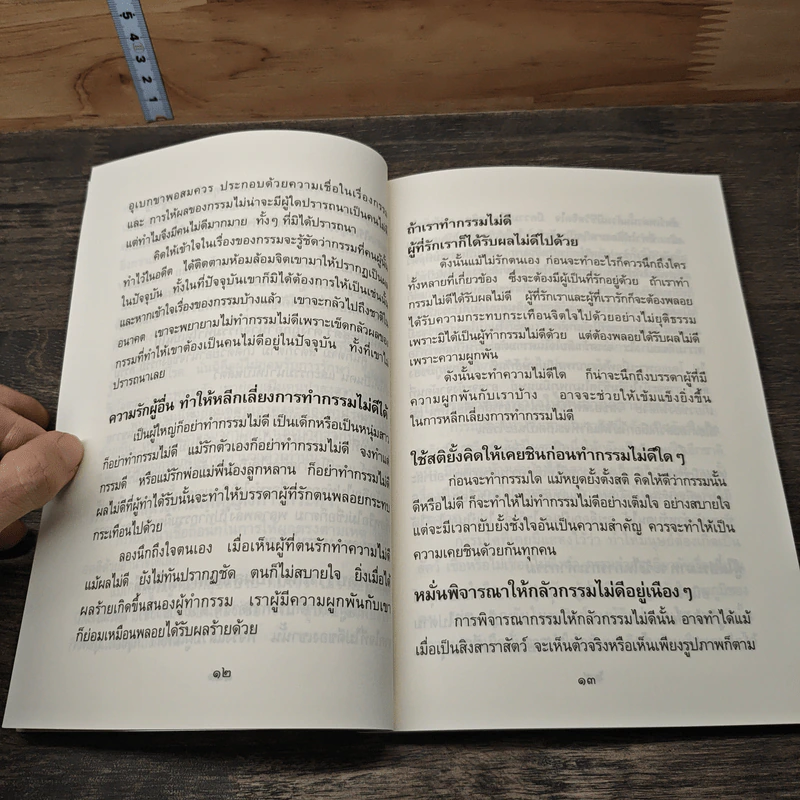 5
4
3
2
1
อุเบกขาพอสมควร ประกอบด้วยความเชื่อในเรื่องกรรม
และ การให้ผลของกรรมไม่น่าจะมีผู้ใดปรารถนาเป็นคนไม่ดี
แต่ทำไมจึงมีคนไม่ดีมากมาย ทั้งๆ ที่มิได้ปรารถนา
คิดให้เข้าใจในเรื่องของกรรมจะรู้ชัดว่ากรรมที่คนผู้นั้น
ทำไว้ในอดีต ได้ติดตามห้อมล้อมจิตเขามาให้ปรากฏเป็นผล
ในปัจจุบัน ทั้งในที่ปัจจุบันเขาก็มิได้ต้องการให้เป็นเช่นนั้น
และหากเข้าใจเรื่องของกรรมบ้างแล้ว เขาจะกลัวไปถึงชาติใน
อนาคต เขาจะพยายามไม่ทำกรรมไม่ดีเพราะเข็ดกลัวผลของ
กรรมที่ทำให้เขาต้องเป็นคนไม่ดีอยู่ในปัจจุบัน ทั้งที่เขาไม่
ปรารถนาเลย
ความรักผู้อื่น ทำให้หลีกเลี่ยงการทำกรรมไม่ดีได้
เป็นผู้ใหญ่ก็อย่าทำกรรมไม่ดี เป็นเด็กหรือเป็นหนุ่มสาว
ก็อย่าทำกรรมไม่ดี แม้รักตัวเองก็อย่าทำกรรมไม่ดี จงทำแต่
กรรมดี หรือแม้รักพ่อแม่พี่น้องลูกหลาน ก็อย่าทำกรรมไม่ดี
ผลไม่ดีที่ผู้ทำได้รับนั้นจะทำให้บรรดาผู้ที่รักตนพลอยกระทบ
กระเทือนไปด้วย
ลองนึกถึงใจตนเอง เมื่อเห็นผู้ที่ตนรักทำความไม่ดี
แม้ผลไม่ดี ยังไม่ทันปรากฏชัด ตนก็ไม่สบายใจ ยิ่งเมื่อได้
ผลร้ายเกิดขึ้นสนองผู้ทำกรรม เราผู้มีความผูกพันกับเขา
ก็ย่อมเหมือนพลอยได้รับผลร้ายด้วย
๑๒
ถ้าเราทำกรรมไม่ดี
ผู้ที่รักเราก็ได้รับผลไม่ดีไปด้วย
ดังนั้นแม้ไม่รักตนเอง ก่อนจะทำอะไรก็ควรนึกถึงใคร
ทั้งหลายที่เกี่ยวข้อง ซึ่งจะต้องมีผู้เป็นที่รักอยู่ด้วย ถ้าเราทำ
กรรมไม่ดีได้รับผลไม่ดี ผู้ที่รักเราและผู้ที่เรารักก็จะต้องพลอย
ได้รับความกระทบกระเทือนจิตใจไปด้วยอย่างไม่ยุติธรรม
เพราะมิได้เป็นผู้ทำกรรมไม่ดีด้วย แต่ต้องพลอยได้รับผลไม่ดี
เพราะความผูกพัน
ดังนั้นจะทำความไม่ดีใด ก็น่าจะนึกถึงบรรดาผู้ที่มี
ความผูกพันกับเราบ้าง อาจจะช่วยให้เข้มแข็งยิ่งขึ้น
ในการหลีกเลี่ยงการทำกรรมไม่ดี
ใช้สติยั้งคิดให้เคยชินก่อนทำกรรมไม่ดีใด ๆ
ก่อนจะทำกรรมใด แม้หยุดยั้งตั้งสติ คิดให้ดีว่ากรรมนั้น
ดีหรือไม่ดี ก็จะทำให้ไม่ทำกรรมไม่ดีอย่างเต็มใจ อย่างสบายใจ
แต่จะมีเวลายับยั้งชั่งใจอันเป็นความสำคัญ ควรจะทำให้เป็น
ความเคยชินด้วยกันทุกคน
หมั่นพิจารณาให้กลัวกรรมไม่ดีอยู่เนือง ๆ
การพิจารณากรรมให้กลัวกรรมไม่ดีนั้น อาจทำได้แม้
เมื่อเป็นสิงสาราสัตว์ จะเห็นตัวจริงหรือเห็นเพียงรูปภาพก็ตาม
๑๓